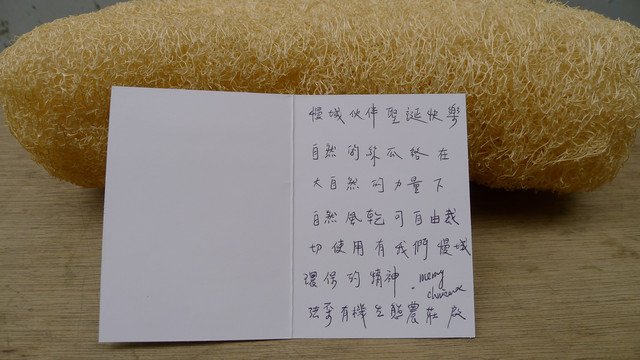 慢城伙伴聖誕快樂
自然的絲瓜絡在
大自然的力量下
自然風乾可自由裁
切使用有我們慢城
環保的精神。merry
有機生態農莊 啟